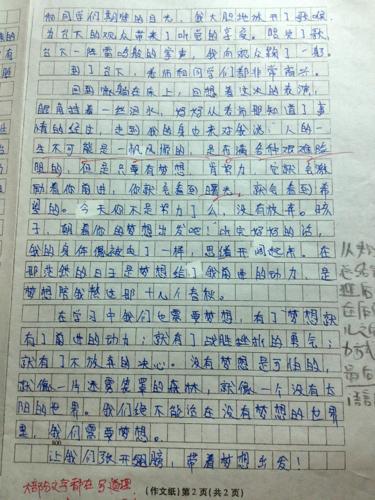 和同学们期待的目光,我大胆地放开了歌喉,
为台下的观众带来了听觉的享受。唱完了歌,
台下一阵雷鸣般的掌声,我向观众鞠了一躬。
到了台下,老师和同学们都非常高兴。
回到家躺在床上,回想着这次的表演,
眼角挂着一丝泪水,妈妈从老师那知道了事
情的经过,走到我的身边来对我说:人的一
生不可能是一帆风顺的,是布满各种艰难险
阻的,但是只要有梦想,肯努力,它就会激
励着你前进,你就会看到曙光,就会看到希
望的。今天你不是努力了么,没有放弃。孩
子,朝着你的梦想出发吧!听完妈妈的话,
我的身体像被电了一样,思绪开阔起来。在
那茫然的日子是梦想给了我前进的动力,是
梦想陪我熬过那十几个春秋。
在学习中我们也需要梦想,有了梦想就
有了前进的动力;就有了战胜挫折的勇气;
就有了不放弃的决心。没有梦想是可怕的,
就像一片迷雾笼罩的森林,就像一个没有太
阳的世界。我们绝不能活在没有梦想的世界
里,我们需要梦想。
让我们张开翅膀,带着梦想出发!
800
(作文纸)第2页(共2页)
大部分文字都在写道理